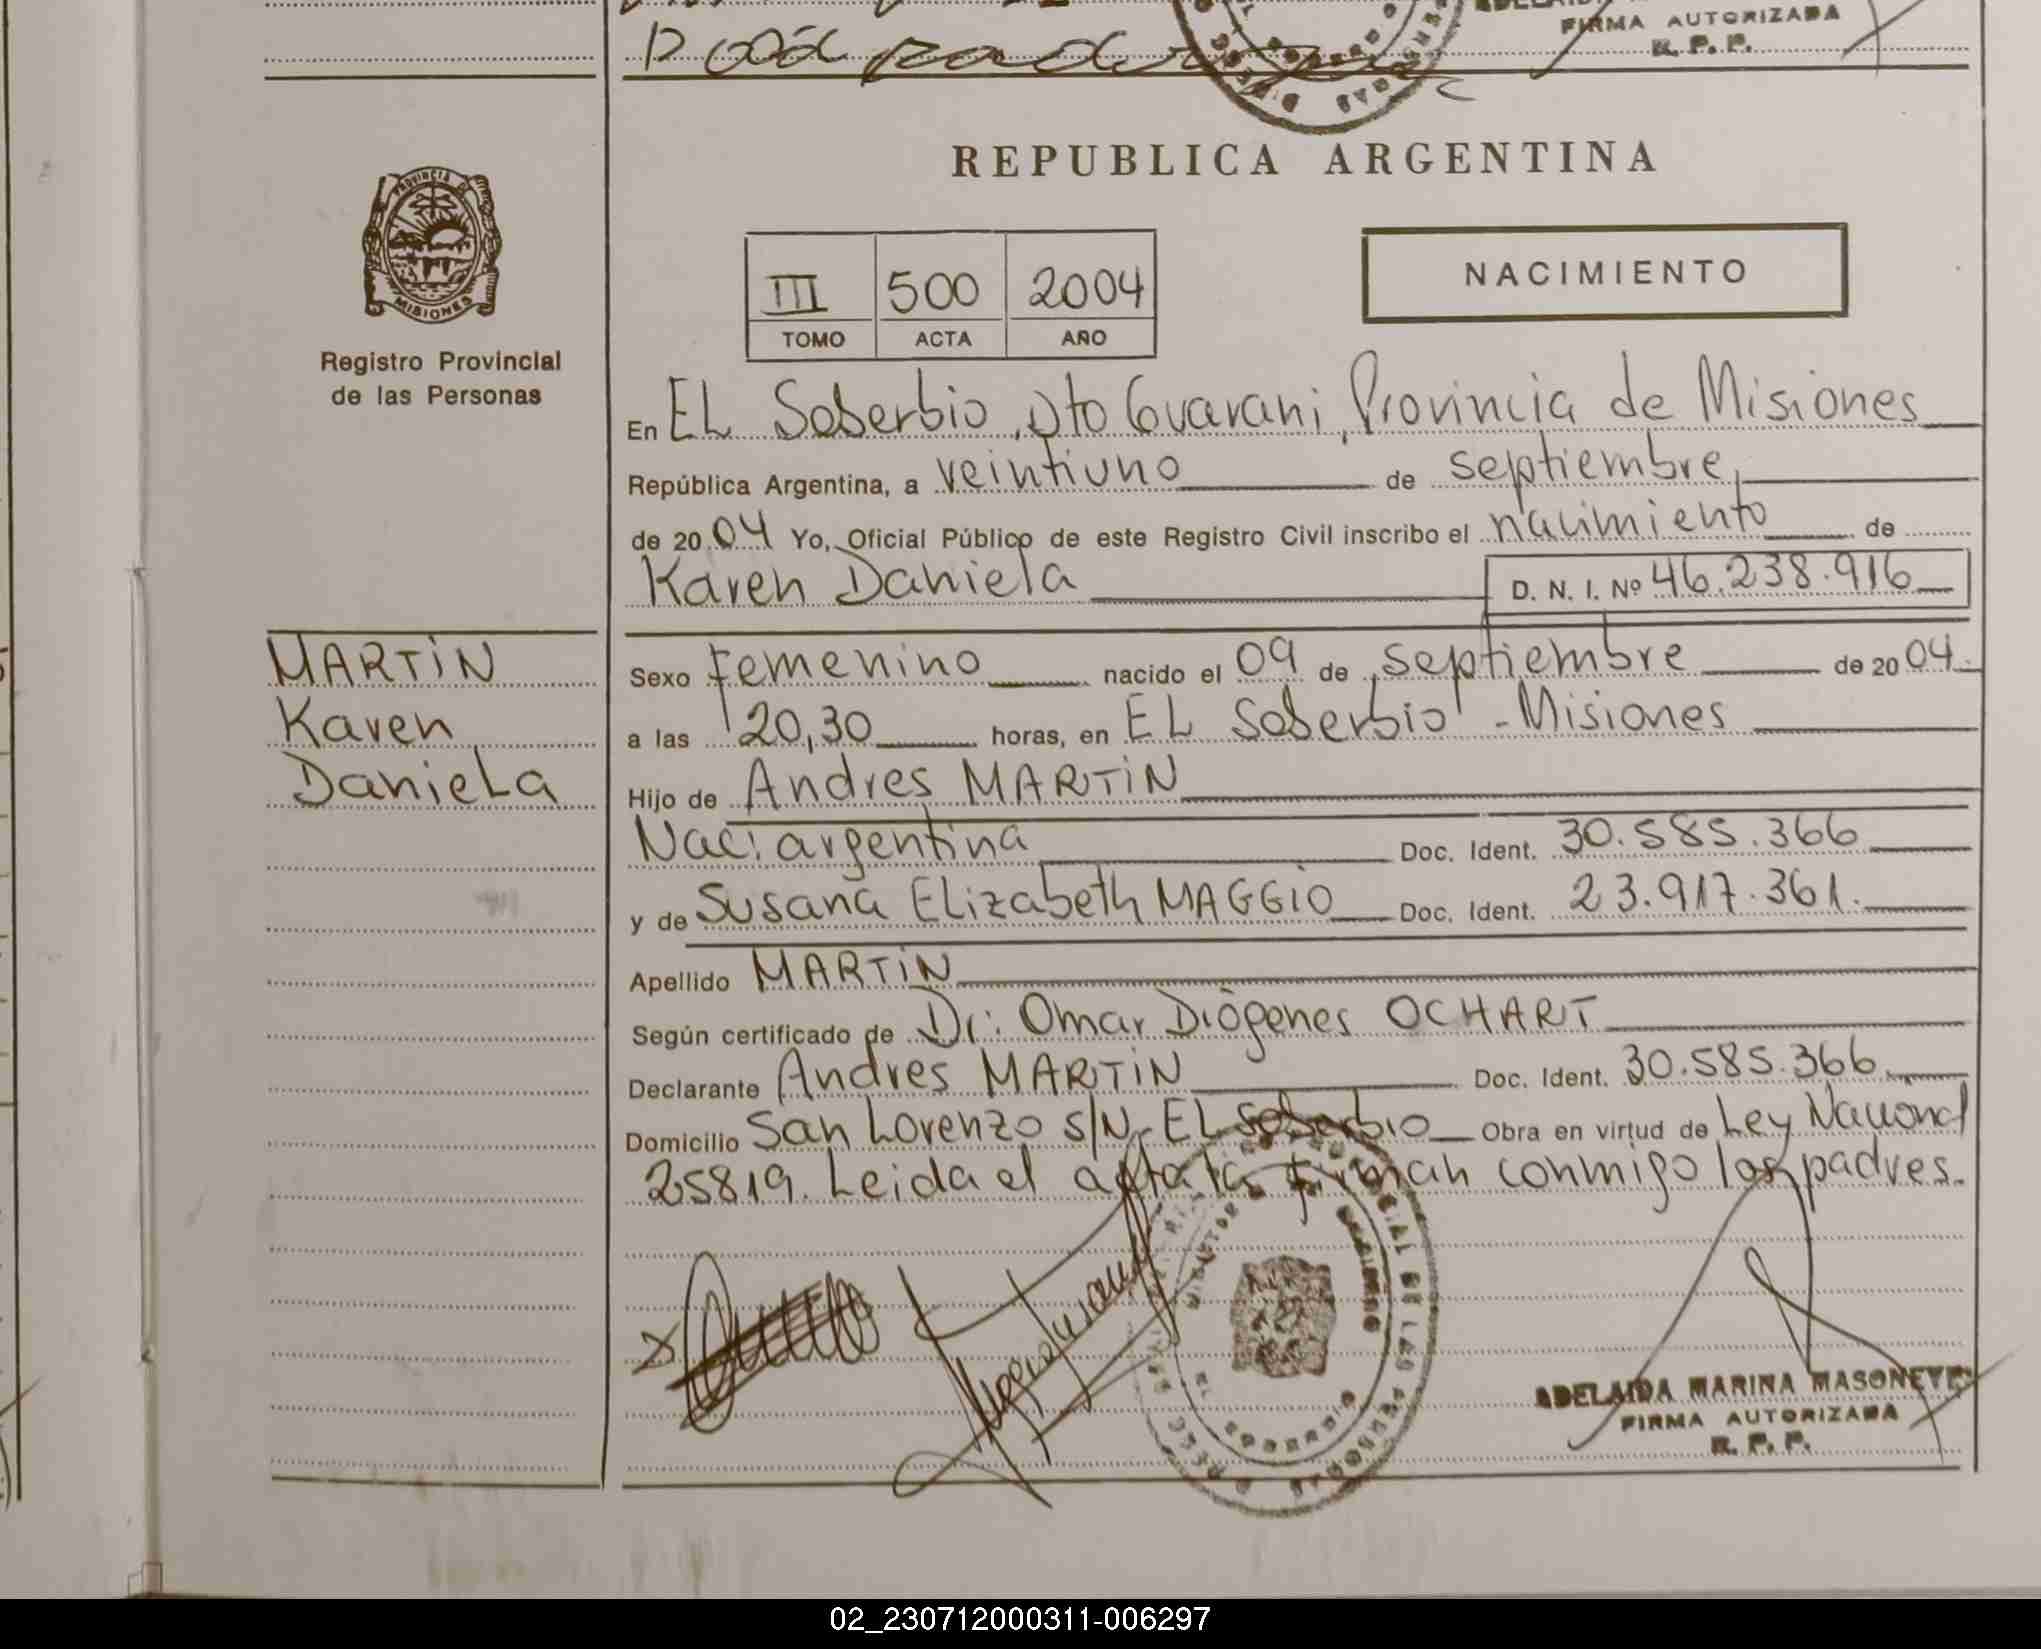 FIRMA AUTORIZADA
R. P. P.
REPUBLICA ARGENTINA
PROVINCIA DE
MISIONES
Registro Provincial
de las Personas
III 500 2004
TOMO ACTA AÑO
NACIMIENTO
En EL Soberbio, Dto Guarani, Provincia de Misiones
República Argentina, a veintiuno de septiembre,
de 2004 Yo, Oficial Público de este Registro Civil inscribo el nacimiento de
Karen Daniela D. N. I. Nº 46.238.916
MARTIN
Karen
Daniela
Sexo Femenino nacido el 09 de septiembre de 2004.
a las 20,30 horas, en EL Soberbio - Misiones
Hijo de Andres MARTIN
Naci: argentina Doc. Ident. 30.585.366
y de Susana Elizabeth MAGGIO Doc. Ident. 23.917.361.
Apellido MARTIN
Según certificado de Dr: Omar Diógenes OCHART
Declarante Andres MARTIN Doc. Ident. 30.585.366
Domicilio San Lorenzo s/N- EL Soberbio Obra en virtud de Ley Nacional
25819. Leida el acta la firman conmigo los padres.
ADELAIDA MARINA MASONEVE
FIRMA AUTORIZADA
R. P. P.
02_230712000311-006297